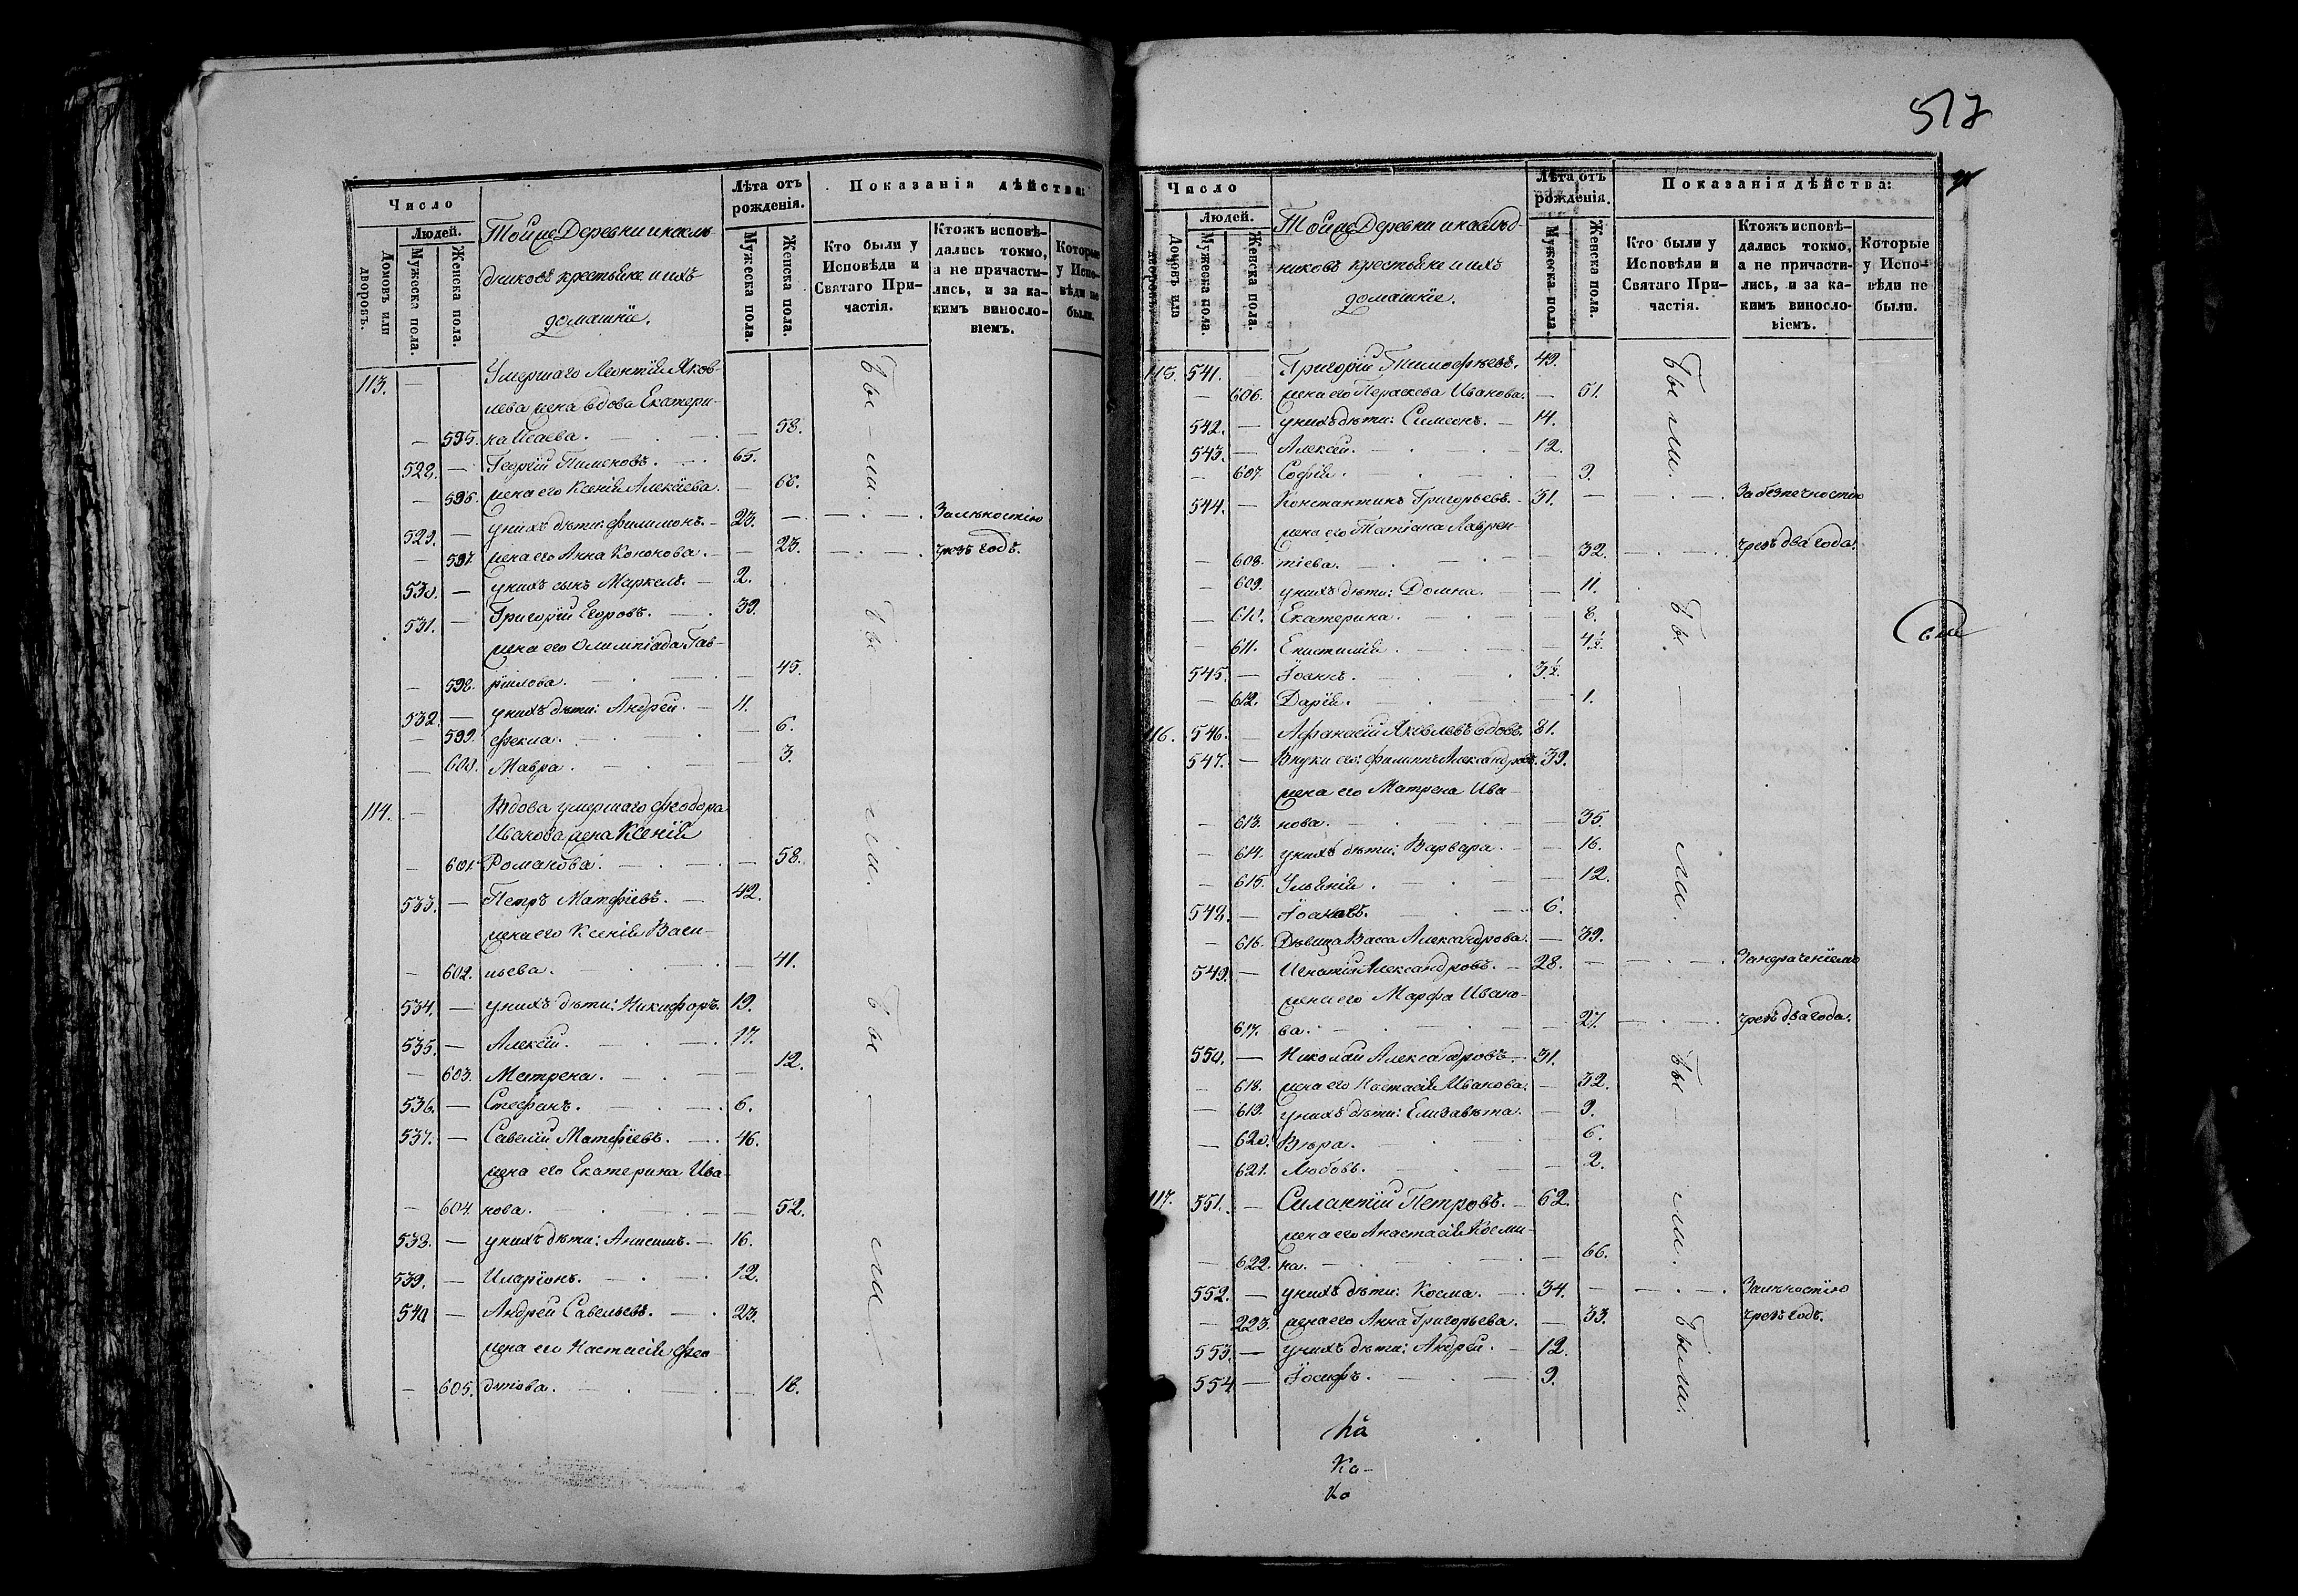 Число
Лѣта отъ рожденія.
Показанія дѣйства:
Домовъ или дворовъ.
Людей.
Мужеска пола.
Женска пола.
Тойже Деревни и наслѣ-
дниковъ крестьяне и ихъ
домашніе.
Мужеска пола.
Женска пола.
Кто были у Исповѣди и Святаго Причастія.
Ктожъ исповѣдались токмо, а не причастились, и за какимъ винословіемъ.
Которые у Исповѣди не были.
113. — Умершаго Леонтія Яков-
лева жена вдова Екатери-
— 595. на Исаева. — 58.
528. — Георгій Пименовъ. 65.
— 596. жена его Ксенія Алексіева. — 68.
529. — у нихъ дѣти: Филимонъ. 23. За лѣностію
— 597. жена его Анна Кононова. — 23. чрезъ годъ.
530. — у нихъ сынъ Маркелъ. 2.
531. — Григорій Егоровъ. 39.
жена его Олимпіада Гав-
— 598. ріилова. — 45.
532. — у нихъ дѣти: Андрей. 11.
— 599. Фекла. — 6.
— 600. Мавра. — 3.
114. — Вдова умершаго Феодора
Иванова жена Ксенія
— 601. Романова. — 58.
533. — Петръ Матфіевъ. 42.
жена его Ксенія Васи-
— 602. льева. — 41.
534. — у нихъ дѣти: Никифоръ. 19.
535. — Алексій. 17.
— 603. Матрена. — 12.
536. — Стефанъ. 6.
537. — Савелій Матфіевъ. 46.
жена его Екатерина Ива-
— 604. нова. — 52.
538. — у нихъ дѣти: Анисимъ. 16.
539. — Иларіонъ. 12.
540 — Андрей Савельевъ. 23.
жена его Настасія Фео-
— 605. дтова. — 18.
Бы — ли.
Бы — ли.
Бы — ли.
517
Число
Лѣта отъ рожденія.
Показанія дѣйства:
Домовъ или дворовъ.
Людей.
Мужеска пола.
Женска пола.
Тойже Деревни и наслѣд-
никовъ крестьяне и ихъ
домашніе.
Мужеска пола.
Женска пола.
Кто были у Исповѣди и Святаго Причастія.
Ктожъ исповѣдались токмо, а не причастились, и за какимъ винословіемъ.
Которые у Исповѣди не были.
115. 541. — Григорій Тимофѣевъ. 49.
— 606. жена его Параскева Иванова. — 51.
542. — у нихъ дѣти: Симеонъ. 14.
543. — Алексѣй. 12.
— 607. Софія. — 9.
544. — Константинъ Григорьевъ. 31. За безпечностію
жена его Татіана Лаврен-
— 608. тіева. — 32. чрезъ два года.
— 609. у нихъ дѣти: Домна. — 11.
— 610. Екатерина. — 8.
— 611. Епистимія. — 4½.
545. — Іоаннъ. 3½.
— 612. Дарія. — 1.
116. 546. — Афанасій Яковлевъ вдовъ. 81.
547. — Внуки его: Филиппъ Александровъ. 39.
жена его Матрена Ива-
— 613. нова. — 35.
— 614. у нихъ дѣти: Варвара. — 16.
— 615. Ульянія. — 12.
548. — Іоаннъ. 6.
— 616. Дѣвица Васса Александрова. — 39.
549. — Игнатій Александровъ. 28. За нераченіемъ
жена его Марфа Ивано-
617. ва. — 27. чрезъ два года.
550. — Николай Александровъ. 31.
— 618. жена его Настасія Иванова. — 32.
— 619. у нихъ дѣти: Елизавѣта. — 9.
— 620. Вѣра. — 6.
621. Любовь. — 2.
117. 551. — Силантій Петровъ. 62.
жена его Анастасія Косми-
— 622. на. — 66.
552. — у нихъ дѣти: Косма. 34. За лѣностію
— 223. жена его Анна Григорьева. — 33. чрезъ годъ.
553. — у нихъ дѣти: Андрей. 12.
554 — Іосифъ. 9.
Были.
Бы. — ли.
Бы — ли.
Были.
Ка-